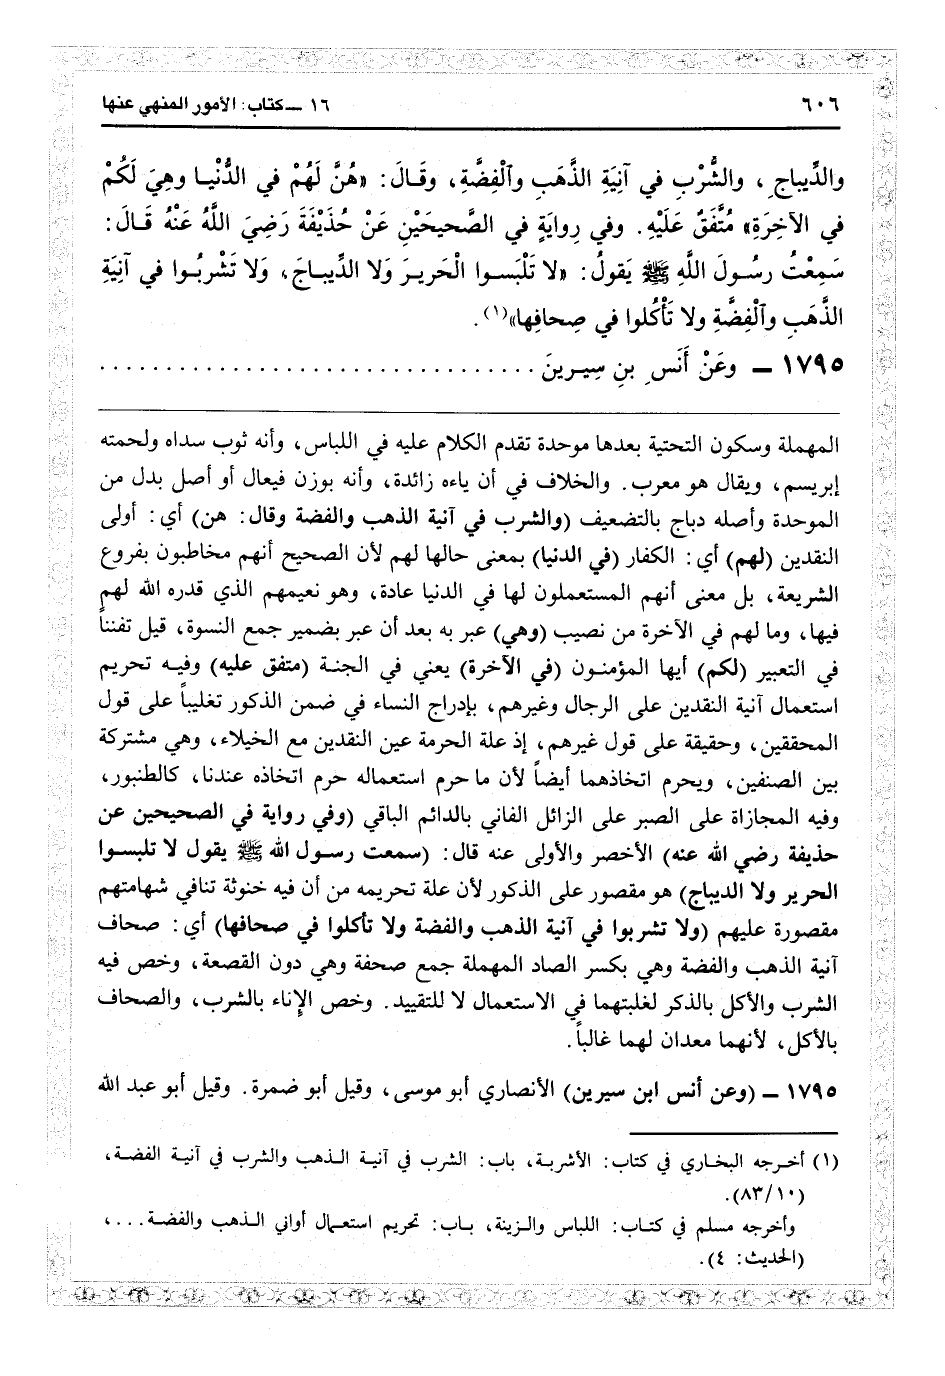 ٦٠٦
١٦ ــ كتاب: الأمور المنهي عنها
والدِّيباجِ، والشُّرْبِ في آنِيَةِ الذَّهَبِ وٱلْفِضَّةِ، وقَـالَ: «هُنَّ لَهُمْ في الدُّنْيـا وهِيَ لَكُمْ
في الآخِرَةِ» مُتَّفَقٌ عَلَيْهِ. وفي رِوايَةٍ في الصَّحيحَيْنِ عَنْ حُذَيْفَةَ رَضِيَ اللَّهُ عَنْهُ قَـالَ:
سَمِعْتُ رسُـولَ اللَّهِ ﷺ يَقولُ: «لا تَلْبَسـوا الْحَريـرَ وَلا الدِّيبـاجَ، وَلا تَشْرَبُـوا في آنِيَةِ
الذَّهَبِ وٱلْفِضَّةِ ولا تَأْكُلوا في صِحافِها»(١).
١٧٩٥ ــ وعَنْ أَنَسِ بنِ سِيـرينَ . . . . . . . . . . . . . . . . . . . . . . . . . . . . . . . .
المهملة وسكون التحتية بعدها موحدة تقدم الكلام عليه في اللباس، وأنه ثوب سداه ولحمته
إبريسم، ويقال هو معرب. والخلاف في أن ياءه زائدة، وأنه بوزن فيعال أو أصل بدل من
الموحدة وأصله دباج بالتضعيف (والشرب في آنية الذهب والفضة وقال: هن) أي: أولى
النقدين (لهم) أي: الكفار (في الدنيا) بمعنى حالها لهم لأن الصحيح أنهم مخاطبون بفروع
الشريعة، بل معنى أنهم المستعملون لها في الدنيا عادة، وهو نعيمهم الذي قدره الله لهم
فيها، وما لهم في الآخرة من نصيب (وهي) عبر به بعد أن عبر بضمير جمع النسوة، قيل تفنناً
في التعبير (لكم) أيها المؤمنـون (في الآخرة) يعني في الجنة (متفق عليه) وفيـه تحريم
استعمال آنية النقدين على الرجال وغيرهم، بإدراج النساء في ضمن الذكور تغليباً على قول
المحققين، وحقيقة على قول غيرهم، إذ علة الحرمة عين النقدين مع الخيلاء، وهي مشتركة
بين الصنفين، ويحرم اتخاذهما أيضاً لأن ما حرم استعماله حرم اتخاذه عندنا، كالطنبور،
وفيه المجازاة على الصبر على الزائل الفاني بالدائم الباقي (وفي رواية في الصحيحين عن
حذيفة رضي الله عنه) الأخصر والأولى عنه قال: (سمعت رسول الله ﷺ يقول لا تلبسـوا
الحرير ولا الديباج) هو مقصور على الذكور لأن علة تحريمه من أن فيه خنوثة تنافي شهامتهم
مقصورة عليهم (ولا تشربوا في آنية الذهب والفضة ولا تأكلوا في صحافها) أي: صحاف
آنية الذهب والفضة وهي بكسر الصاد المهملة جمع صحفة وهي دون القصعة، وخص فيه
الشرب والأكل بالذكر لغلبتهما في الاستعمال لا للتقييد. وخص الإناء بالشرب، والصحاف
بالأكل، لأنهما معدان لهما غالباً.
١٧٩٥ ــ (وعن أنس ابن سيرين) الأنصاري أبو موسى، وقيل أبو ضمرة. وقيل أبو عبد الله
(١) أخـرجه البخـاري في كتاب: الأشربـة، باب: الشرب في آنيـة الـذهب والشرب في آنيـة الفضـة،
(٨٣/١٠).
وأخرجه مسلم في كتـاب: اللباس والـزينة، بـاب: تحريم استعـمال أواني الـذهب والفضـة...،
(الحديث: ٤).